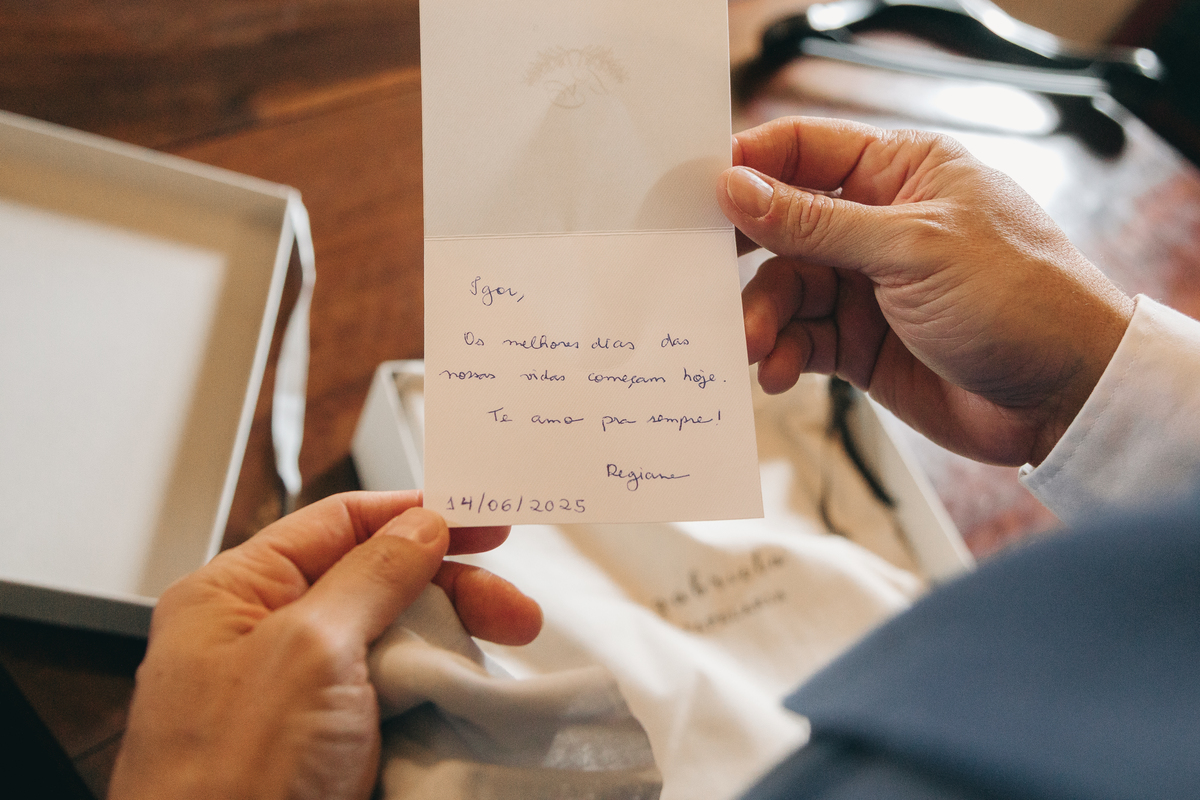 Igor,
Os melhores dias das
nossas vidas começam hoje.
Te amo pra sempre!
Regiane
14/06/2025